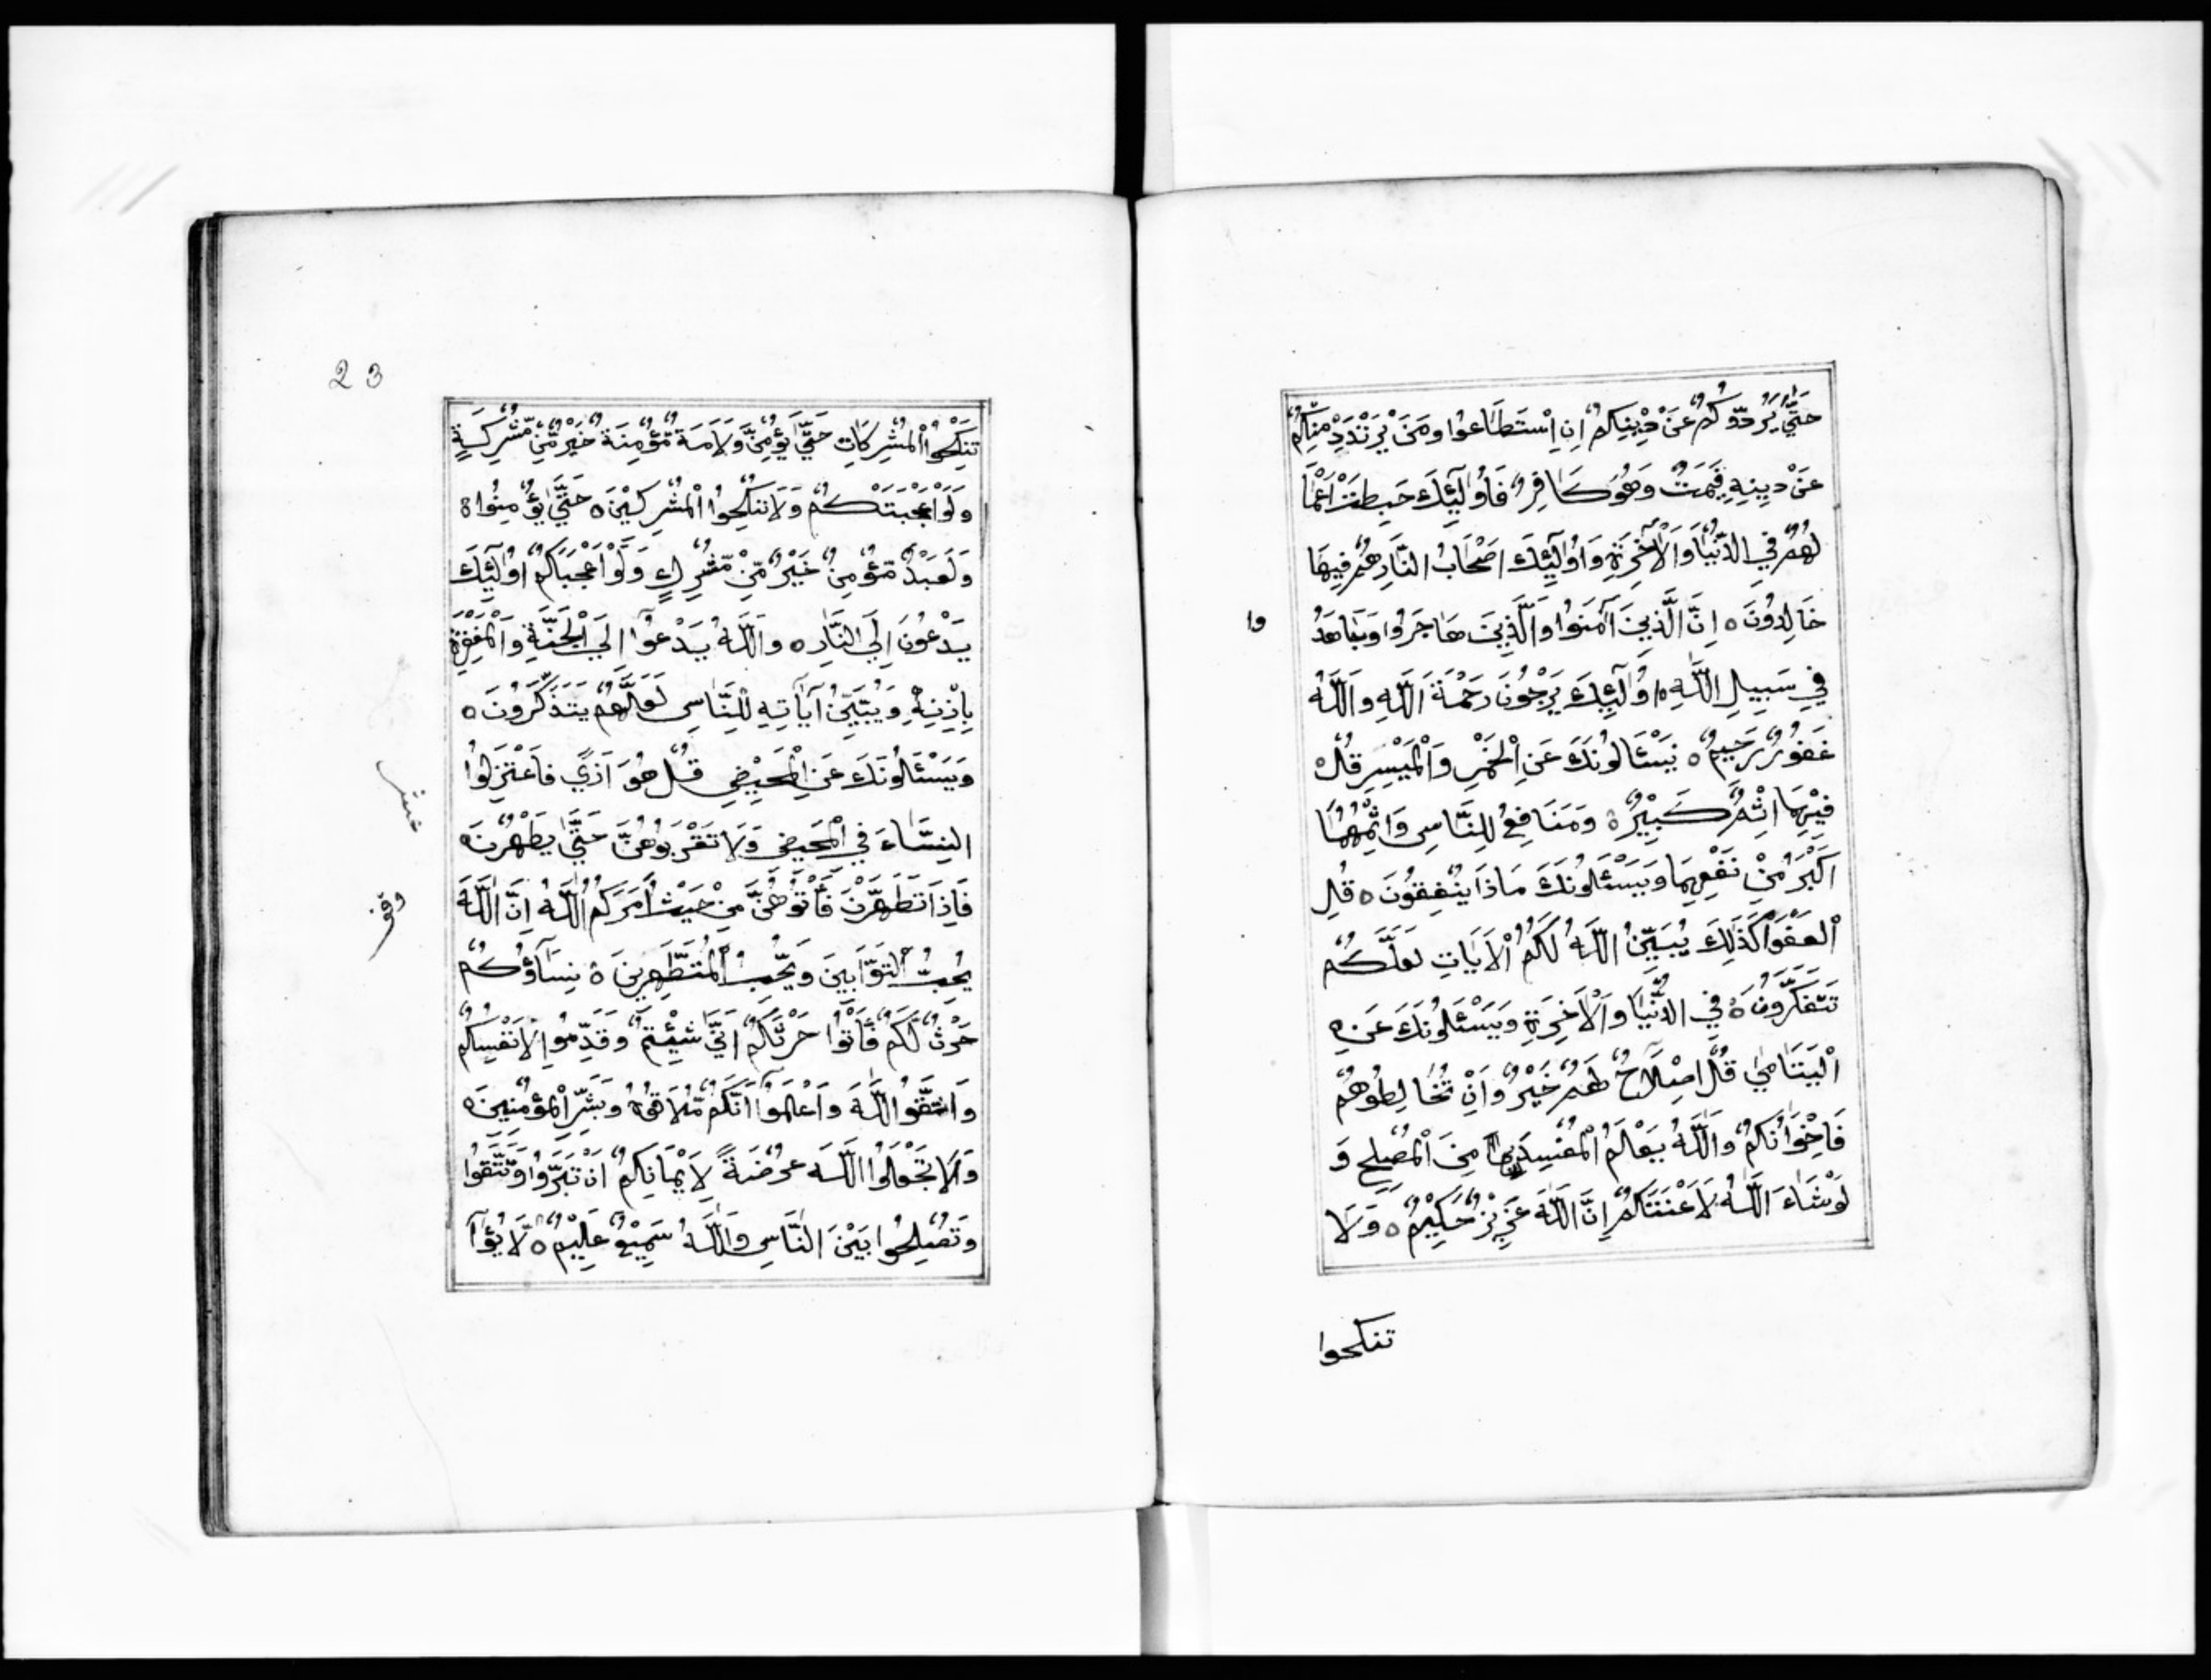 حَتَّىٰ يَرُدُّوكُمْ عَنْ دِيْنِكُمْ اِنِ اسْتَطَاعُوا وَمَنْ يَرْتَدِدْ مِنْكُمْ
عَنْ دِيْنِهِ فَيَمُتْ وَهُوَ كَافِرٌ فَاُولَٓئِكَ حَبِطَتْ اَعْمَا
لُهُمْ فِي الدُّنْيَا وَالْاٰخِرَةِ وَاُولَٓئِكَ اَصْحَابُ النَّارِ هُمْ فِيهَا
خَالِدُونَ ٥ اِنَّ الَّذِينَ آمَنُوا وَالَّذِينَ هَاجَرُوا وَجَاهَدُ
وا
فِي سَبِيلِ اللَّهِ ٥ اُولَٓئِكَ يَرْجُونَ رَحْمَةَ اللَّهِ وَاللَّهُ
غَفُورٌ رَحِيمٌ ٥ يَسْئَالُونَكَ عَنِ الْخَمْرِ وَالْمَيْسِرِ قُلْ
فِيْهِمَا اِثْمٌ كَبِيْرٌ ٥ وَمَنَافِعُ لِلنَّاسِ وَاِثْمُهُمَا
اَكْبَرُ مِنْ نَفْعِهِمَا وَيَسْئَلُونَكَ مَاذَا يُنْفِقُونَ ٥ قُلِ
الْعَفْوَا كَذَلِكَ يُبَيِّنُ اللَّهُ لَكُمُ الْاَيَاتِ لَعَلَّكُمْ
تَتَفَكَّرُونَ ٥ فِي الدُّنْيَا وَالْاَخِرَةِ وَيَسْئَلُونَكَ عَنِ ٥
الْيَتَامَىٰ قُلْ اِصْلَاحٌ لَهُمْ خَيْرٌ وَاِنْ تُخَالِطُوهُمْ
فَاِخْوَانُكُمْ وَاللَّهُ يَعْلَمُ الْمُفْسِدَ مِنَ الْمُصْلِحِ وَ
لَوْ شَاءَ اللَّهُ لَاَعْنَتَكُمْ اِنَّ اللَّهَ عَزِيْزٌ حَكِيْمٌ ٥ وَلَا
تنكحوا
23
تَنْكِحُوا الْمُشْرِكَاتِ حَتَّىٰ يُؤْمِنَّ وَلَاَمَةٌ مُّؤْمِنَةٌ خَيْرٌ مِّنْ مُّشْرِكَةٍ
وَلَوْ اَعْجَبَتْكُمْ وَلَا تُنْكِحُوا الْمُشْرِكِيْنَ ٥ حَتَّىٰ يُؤْمِنُوا ٥
وَلَعَبْدٌ مُّؤْمِنٌ خَيْرٌ مِّنْ مُّشْرِكٍ وَلَوْ اَعْجَبَكُمْ اُولَٓئِكَ
يَدْعُونَ اِلَى النَّارِ ٥ وَاللَّهُ يَدْعُوٓا اِلَى الْجَنَّةِ وَالْمَغْفِرَةِ
بِاِذْنِهِ وَيُبَيِّنُ آيَاتِهِ لِلنَّاسِ لَعَلَّهُمْ يَتَذَكَّرُونَ ٥
وَيَسْئَالُونَكَ عَنِ الْمَحِيْضِ قُلْ هُوَ اَذًى فَاعْتَزِلُوا
عشر
النِّسَاءَ فِي الْمَحِيضِ وَلَا تَقْرَبُوهُنَّ حَتَّىٰ يَطْهُرْنَ ٥
فَاِذَا تَطَهَّرْنَ فَأْتُوهُنَّ مِنْ حَيْثُ اَمَرَكُمُ اللَّهُ اِنَّ اللَّهَ
يُحِبُّ التَّوَّابِينَ وَيُحِبُّ الْمُتَطَهِّرِينَ ٥ نِسَآؤُكُمْ
حَرْثٌ لَّكُمْ فَأْتُوا حَرْثَكُمْ اَنَّىٰ شِئْتُمْ وَقَدِّمُوا لِاَنْفُسِكُمْ
وَاتَّقُوا اللَّهَ وَاعْلَمُوٓا اَنَّكُمْ مُّلَاقُوهُ وَبَشِّرِ الْمُؤْمِنِينَ ٥
وَلَا تَجْعَلُوا اللَّهَ عُرْضَةً لِاَيْمَانِكُمْ اَنْ تَبَرُّوا وَتَتَّقُوا
وَتُصْلِحُوا بَيْنَ النَّاسِ وَاللَّهُ سَمِيْعٌ عَلِيْمٌ ٥ لَّا يُؤَا